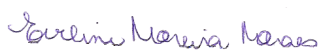 Eveline Moreira Moraes